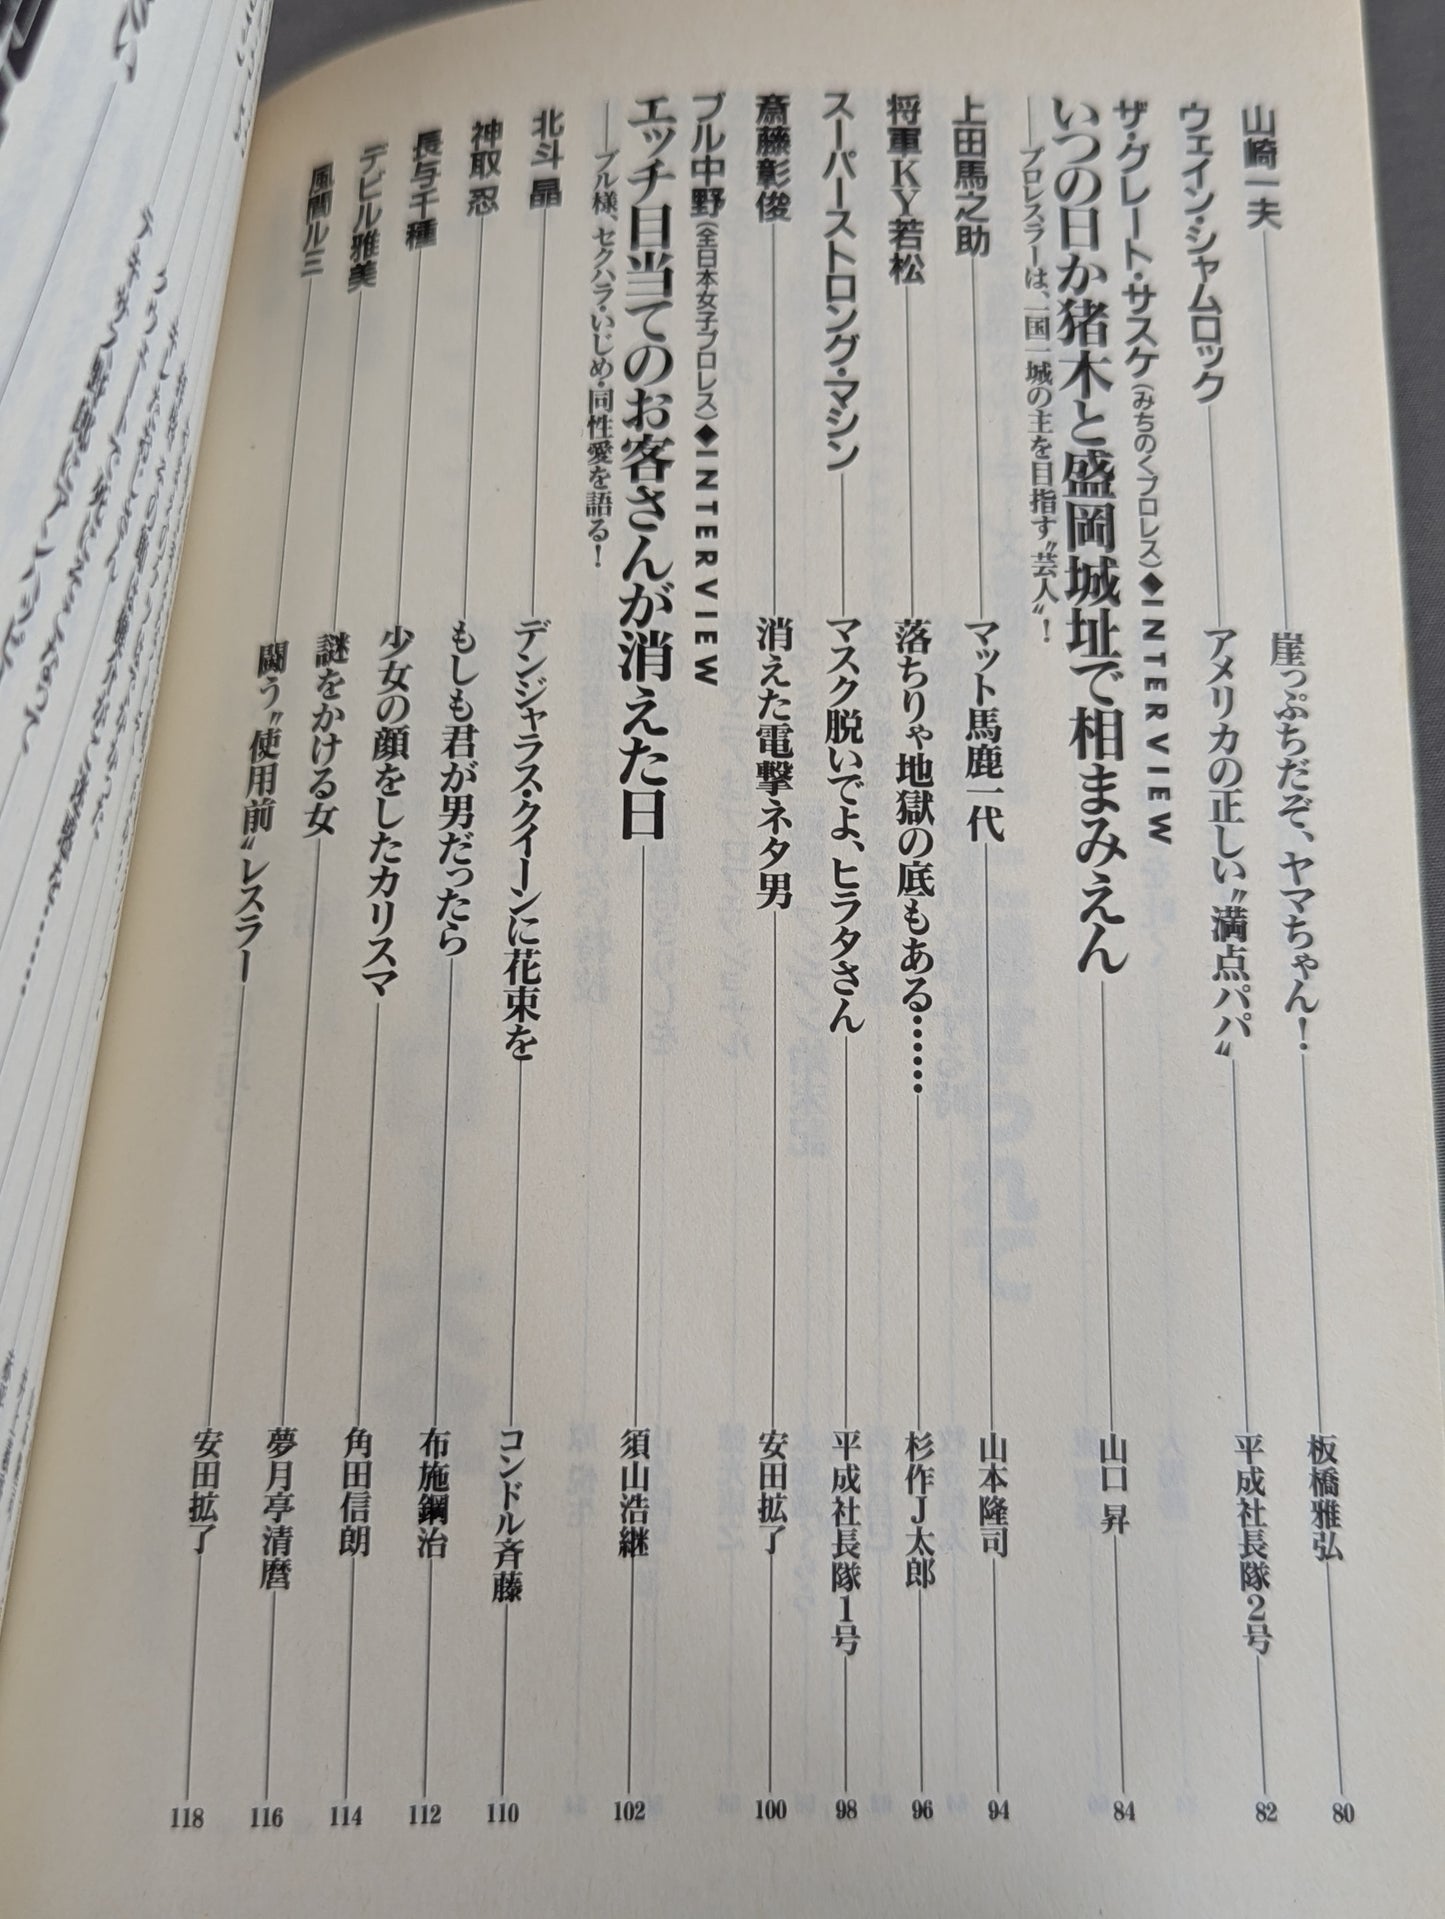 山崎一夫 崖っぷちだぞ、ヤマちゃん！ 板橋雅弘 80
ウェイン・シャムロック アメリカの正しい〝満点パパ〟 平成社長隊2号 82
ザ・グレート・サスケ（みちのくプロレス）◆INTERVIEW
いつの日か猪木と盛岡城址で相まみえん 山口 昇 84
──プロレスラーは、一国一城の主を目指す〝芸人〟！
上田馬之助 マット馬鹿一代 山本隆司 94
将軍KY若松 落ちりゃ地獄の底もある…… 杉作J太郎 96
スーパーストロング・マシン マスク脱いでよ、ヒラタさん 平成社長隊1号 98
斎藤彰俊 消えた電撃ネタ男 安田拡了 100
ブル中野（全日本女子プロレス）◆INTERVIEW
エッチ目当てのお客さんが消えた日 須山浩継 102
──ブル様、セクハラ・いじめ・同性愛を語る！
北斗 晶 デンジャラス・クイーンに花束を コンドル斉藤 110
神取 忍 もしも君が男だったら 布施鋼治 112
長与千種 少女の顔をしたカリスマ 角田信朗 114
デビル雅美 謎をかける女 夢月亭清麿 116
風間ルミ 闘う〝使用前〟レスラー 安田拡了 118